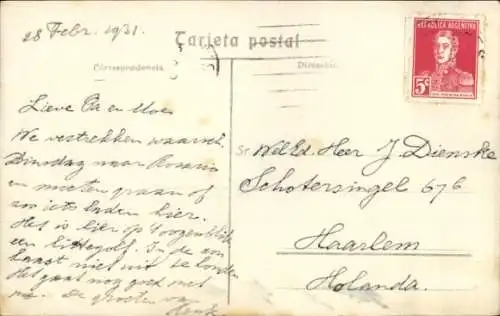 28 Febr. 1931.
Tarjeta postal
Correspondencia
Dirección
REPUBLICA ARGENTINA
5c
Lieve Pa en Moe
We vertrekken waarsch.
Dinsdag naar Rosario
en moeten graan of
zoo iets laden hier.
Het is hier op 't oogenblik
een hittegolf. In de zon
haast niet uit te houden
Het gaat nog goed met
me. De groeten van
Henk
Sr. WelEd. Heer J. Dienske
Schotersingel 676
Haarlem
Holanda.